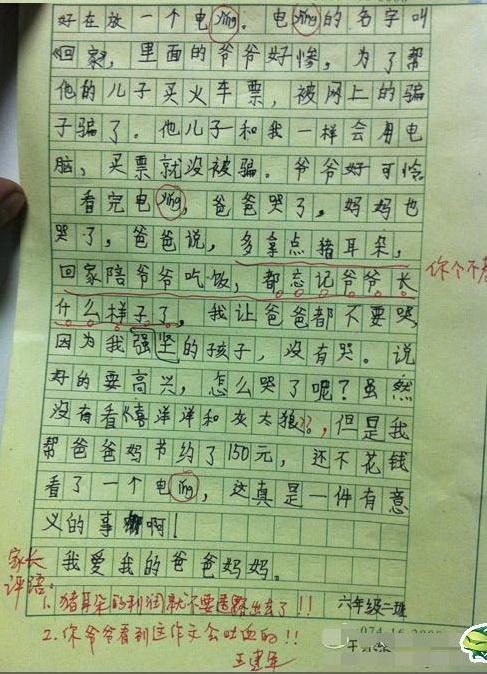 好在放一个电ying。电ying的名字叫
《回家》，里面的爷爷好惨，为了帮
他的儿子买火车票，被网上的骗
子骗了。他儿子和我一样会用电
脑，买票就没被骗。爷爷好可怜
看完电ying，爸爸哭了，妈妈也
哭了，爸爸说，多拿点猪耳朵，
回家陪爷爷吃饭，都忘记爷爷长
你个不孝
什么样子了，我让爸爸都不要哭
因为我强坚的孩子，没有哭。说
好的要高兴，怎么哭了呢？虽然
没有看《喜洋洋和灰太狼》，但是我
帮爸爸妈节约了150元，还不花钱
看了一个电ying，这真是一件有意
义的事啊！
我爱我的爸爸妈妈。
家长
评语：
1、猪耳朵的利润就不要透露出去了！！
六年级二班
2、你爷爷看到这作文会吐血的！！
王建军